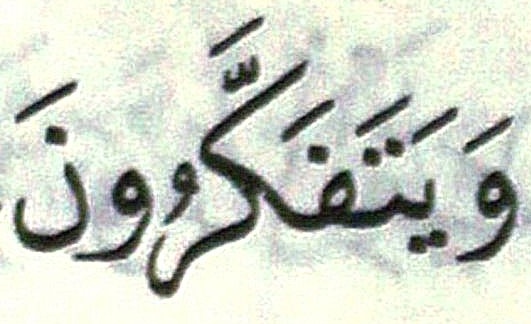 وَيَتَفَكَّرُونَ